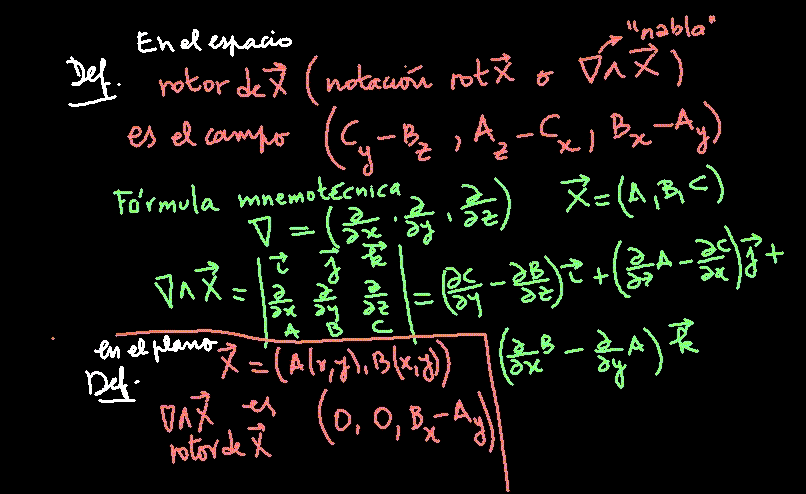 En el espacio
"nabla"
Def. rotor de X⃗ (notación rot X⃗ o ∇∧X⃗)
es el campo (C_y − B_z , A_z − C_x , B_x − A_y)
Fórmula mnemotécnica
∇ = (∂/∂x , ∂/∂y , ∂/∂z) X⃗ = (A, B, C)
∇∧X⃗ = | i⃗ j⃗ k⃗ ; ∂/∂x ∂/∂y ∂/∂z ; A B C | = (∂C/∂y − ∂B/∂z) i⃗ + (∂/∂z A − ∂C/∂x) j⃗ +
(∂/∂x B − ∂/∂y A) k⃗
en el plano
Def. X⃗ = (A(x,y), B(x,y))
∇∧X⃗ es (0, 0, B_x − A_y)
rotor de X⃗